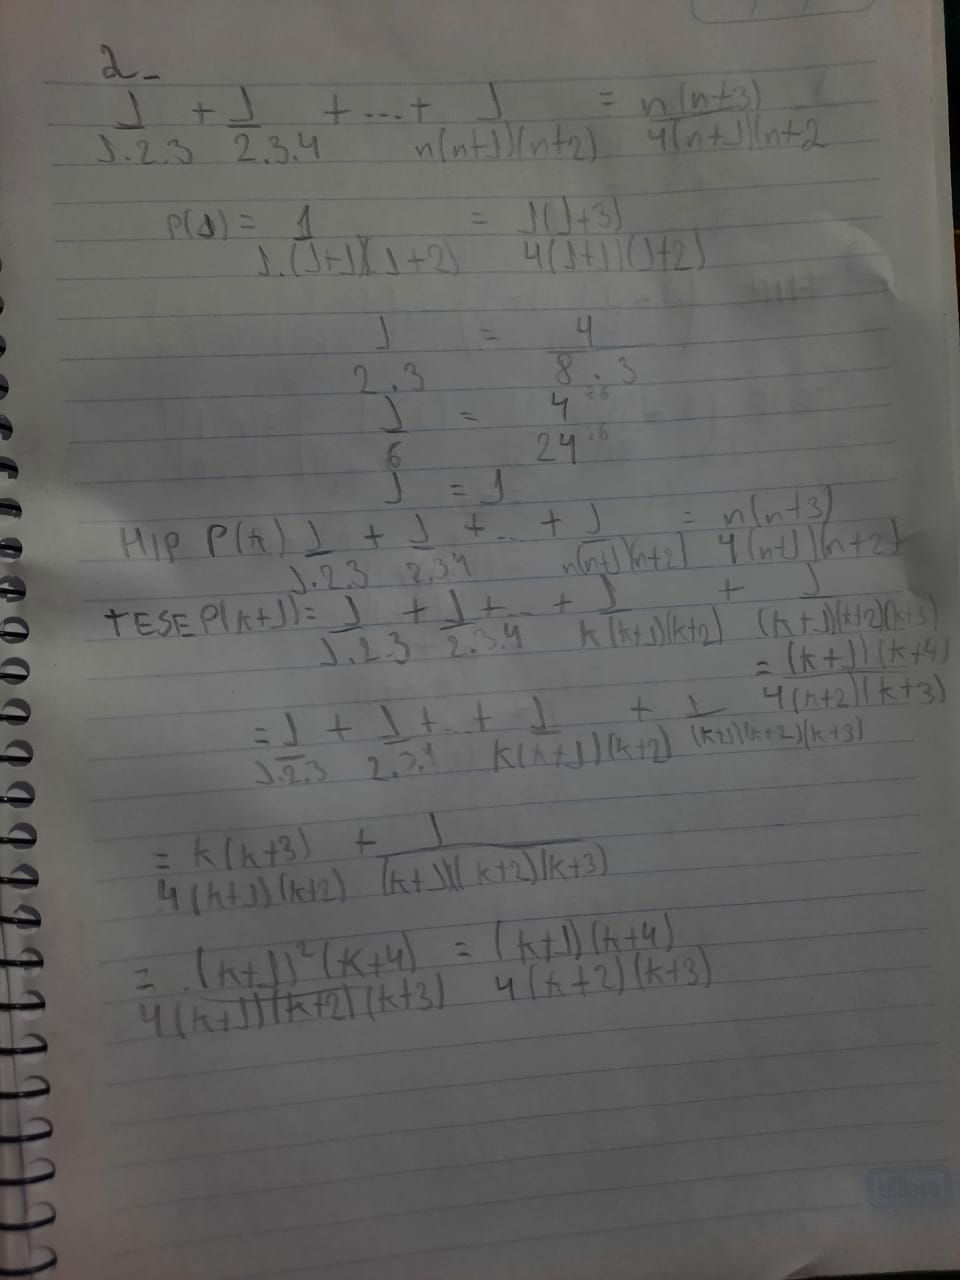 2-
1/1.2.3 + 1/2.3.4 + ... + 1/n(n+1)(n+2) = n(n+3)/4(n+1)(n+2
P(1) = 1/1.(1+1)(1+2) = 1(1+3)/4(1+1)(1+2)
1/2.3 = 4/8.3
1/6 = 4/24
1 = 1
HIP P(k) 1/1.2.3 + 1/2.3.4 + ... + 1/n(n+1)(n+2) = n(n+3)/4(n+1)(n+2)
TESE P(k+1) = 1/1.2.3 + 1/2.3.4 + ... + 1/k(k+1)(k+2) + 1/(k+1)(k+2)(k+3)
= (k+1)(k+4)/4(k+2)(k+3)
= 1/1.2.3 + 1/2.3.4 + .. + 1/k(k+1)(k+2) + 1/(k+1)(k+2)(k+3)
= k(k+3)/4(k+1)(k+2) + 1/(k+1)(k+2)(k+3)
= (k+1)²(k+4)/4(k+1)(k+2)(k+3) = (k+1)(k+4)/4(k+2)(k+3)
tilibra